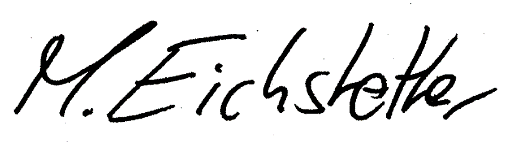 M. Eichstetter